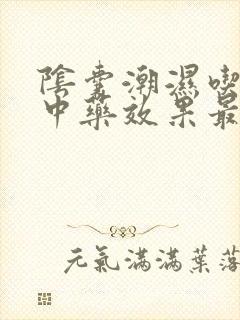 陰囊潮濕喫
中藥效果最
元氣滿滿葉落